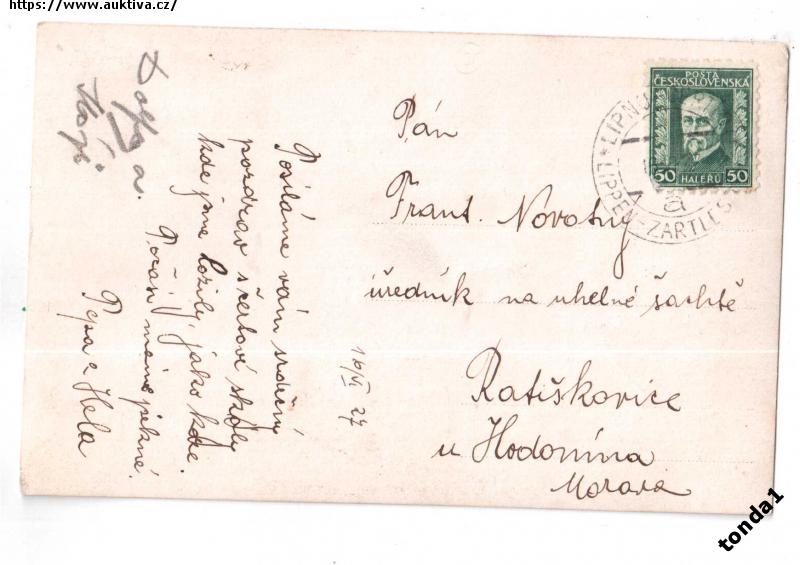 https://www.auktiva.cz/
Posíláme vám srdečný
pozdrav s čertové stěny
kde jsme lozily, jako koze.
Počasí máme pěkné.
Pepa a Hela
a
16/VI 27
POŠTA
ČESKOSLOVENSKÁ
50 HALÉŘŮ 50
LIPNO
LIPPEN-ZARTLES
Pán
Frant. Novotný
úředník na uhelné šachtě
Ratiškovice
u Hodonína
Morava
tonda1